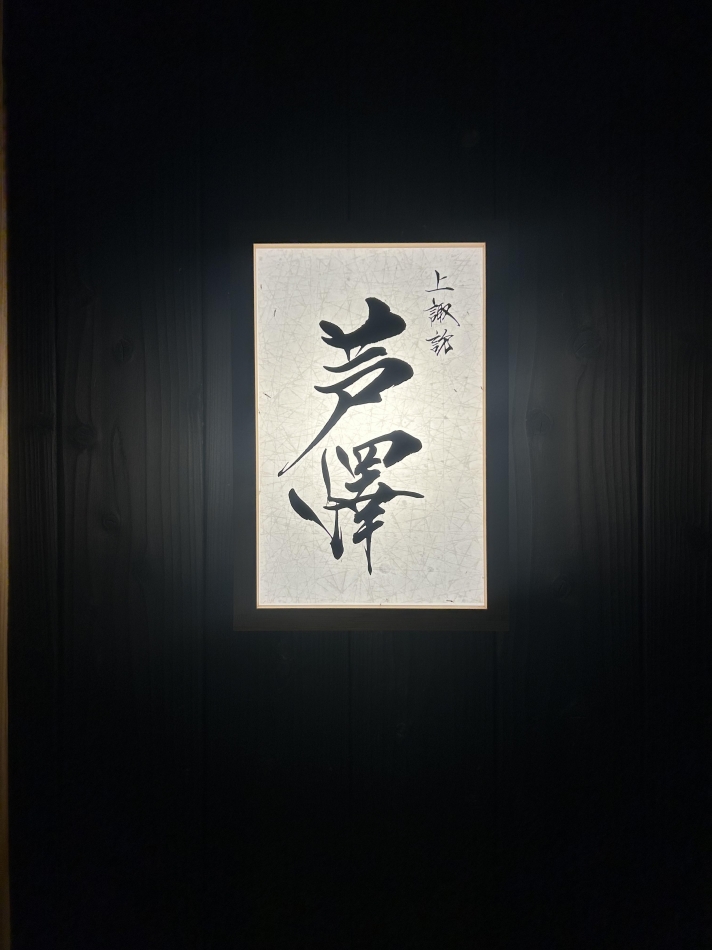 上諏訪
芦澤